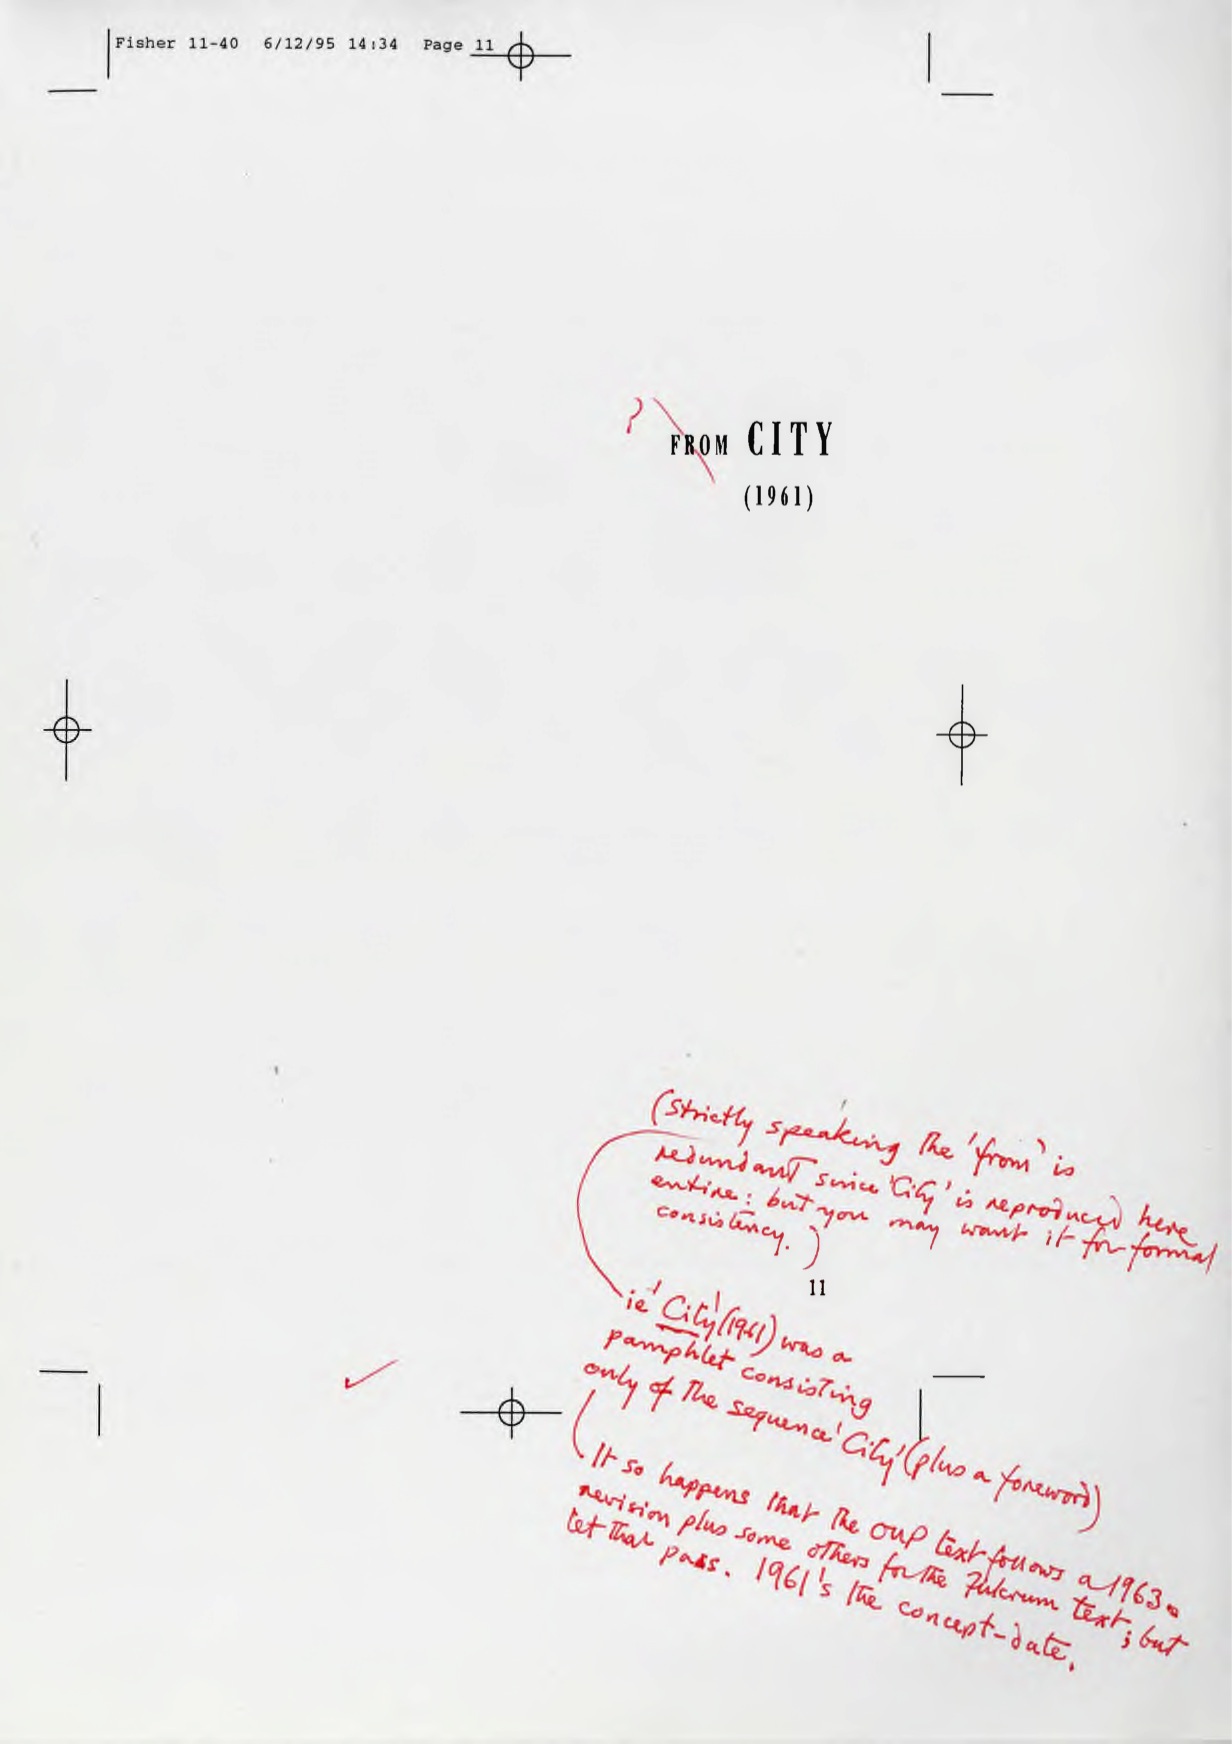 Fisher 11-40 6/12/95 14:34 Page 11
?
FROM CITY
(1961)
(Strictly speaking the 'from' is
redundant since 'City' is reproduced here
entire: but you may want it for formal
consistency.)
11
ie 'City' (1961) was a
pamphlet consisting
only of the sequence 'City' (plus a foreword)
It so happens that the OUP text follows a 1963
revision plus some others for the Fulcrum text; but
let that pass. 1961's the concept-date.